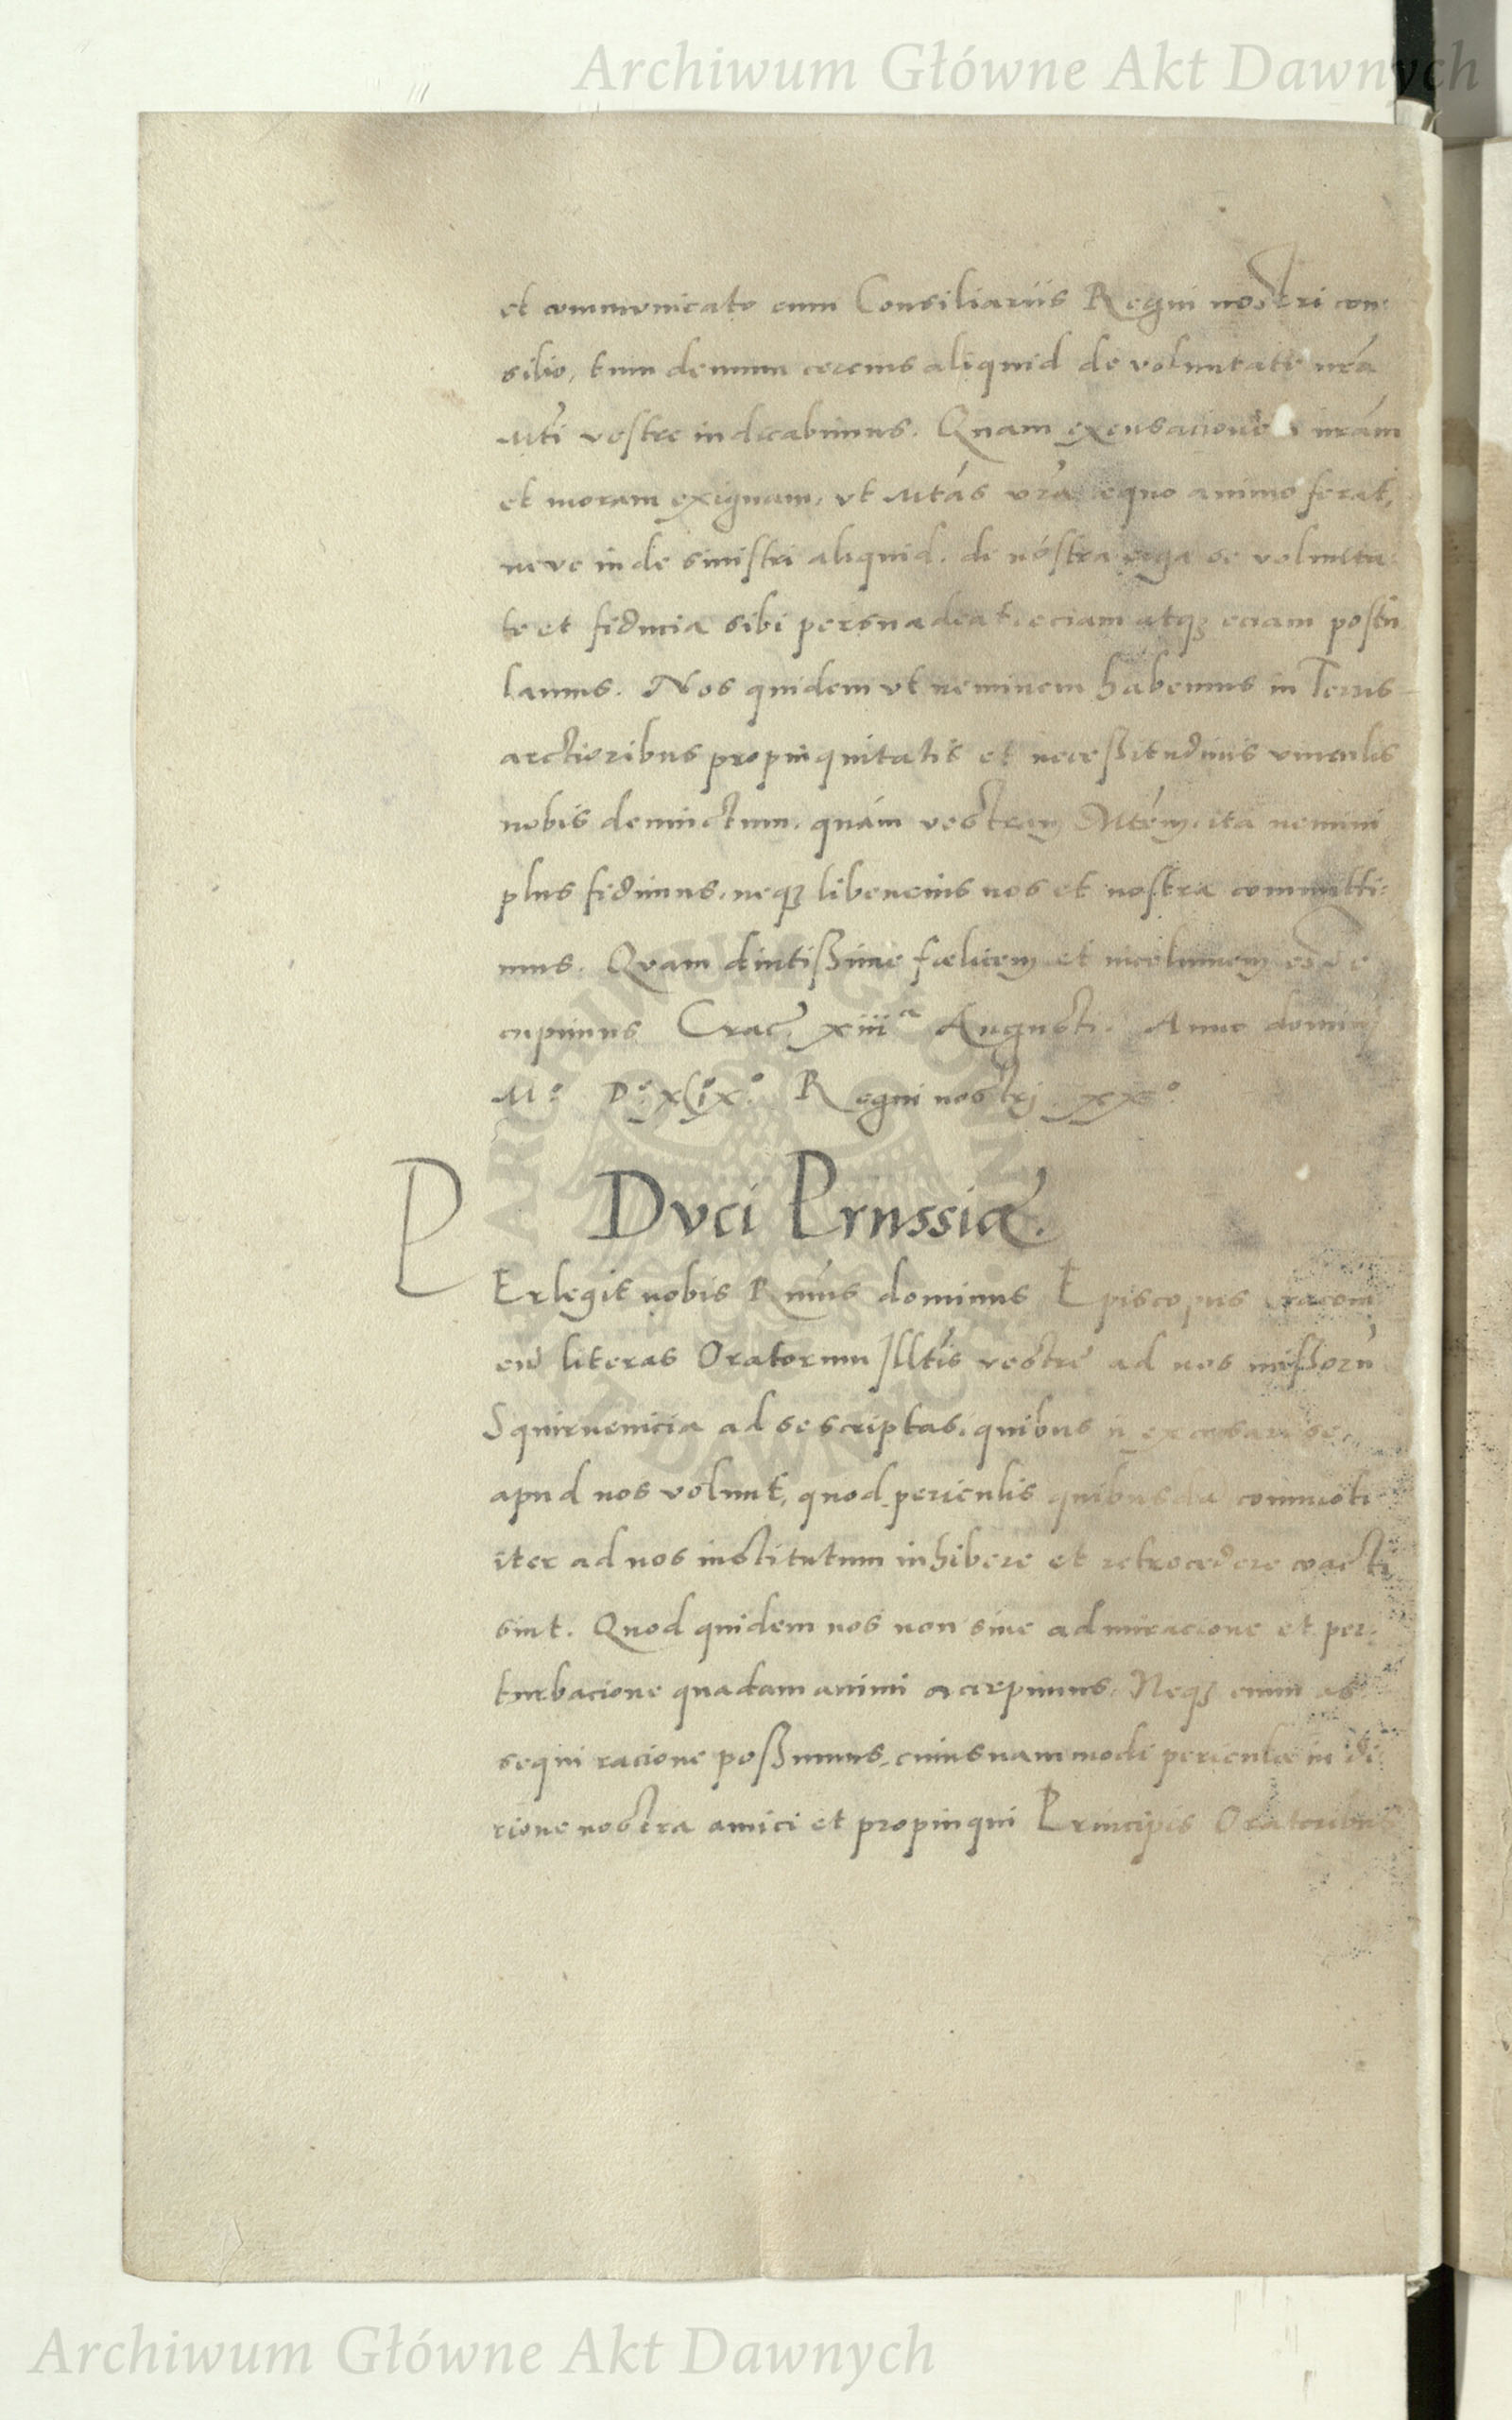 Archiwum Główne Akt Dawnych
et communicato cum Consiliariis Regni nostri con:
silio, tum demum certius aliquid de voluntate nra
Mti vestre indicabimus. Quam excusacione nram
et moram exiguam, vt Mtas vra equo animo ferat,
neve inde sinistri aliquid de nostra erga se volunta:
te et fiducia sibi persuadeat, eciam atqꝫ eciam postu
lamus. Nos quidem vt neminem habemus in Terris
arctioribus propinquitatis et neceßitudinis vinculis
nobis deuinctum, quám vestram Mtem, ita nemini
plus fidimus, neqꝫ libencius nos et nostra committi:
mus. Quam diutißime fœlicem et incolumem esse
cupimus Crac. xiiiª Augusti. Anno domini
M.º D.º xlixº. Regni nostri xxº
Dvci Prussiæ.
PErlegit nobis Rmus dominus Episcopus Cracoui
en literas Oratorum Illtis vestre ad nos mißoru
Squirvenicia ad se scriptas, quibus ii excusari se
apud nos volunt, quod periculis quibusda commoti
iter ad nos institutum inhibere et retrocedere coacti
sint. Quod quidem nos non sine admiracione et per:
turbacione quadam animi accepimus. Neqꝫ enim as
sequi racione poßumus, cuiusnam modi pericula in di:
cione nostra amici et propinqui Principis Oratoribus
Archiwum Główne Akt Dawnych